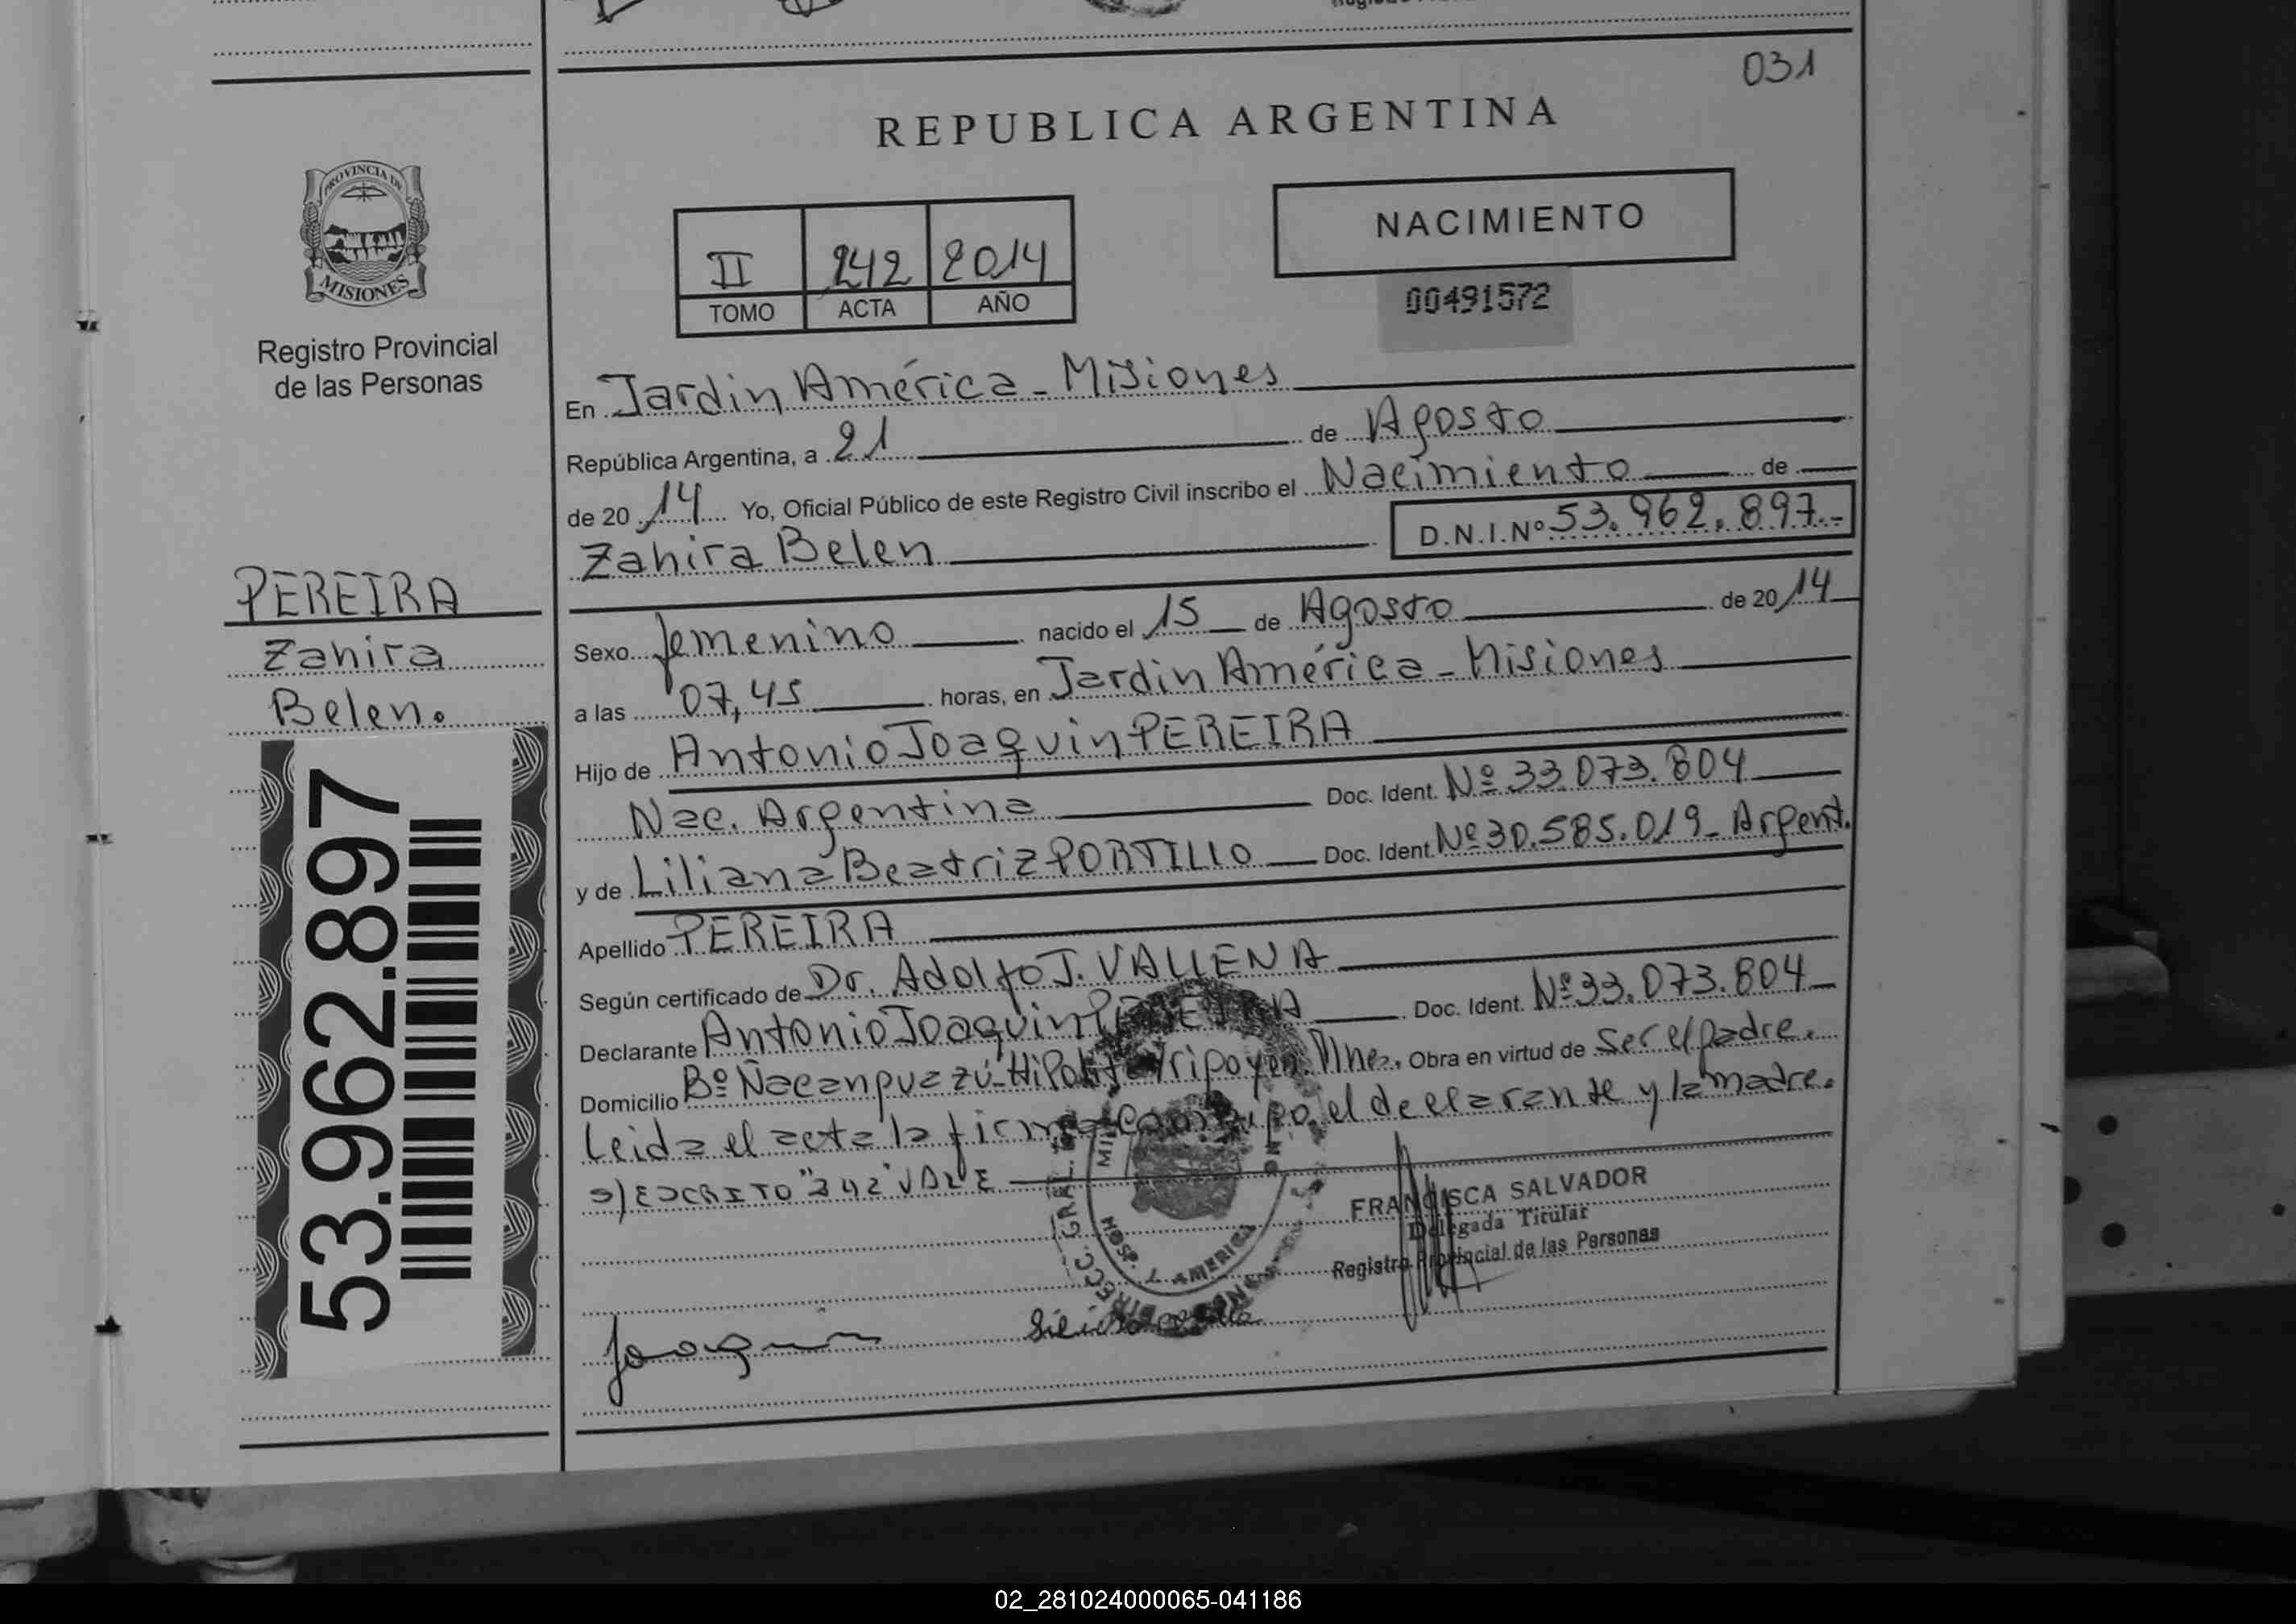 031
REPUBLICA ARGENTINA
PROVINCIA DE
MISIONES
Registro Provincial
de las Personas
II 242 2014
TOMO ACTA AÑO
NACIMIENTO
00491572
En Jardin América - Misiones
República Argentina, a 21 de Agosto
de 20 14 Yo, Oficial Público de este Registro Civil inscribo el Nacimiento de
Zahira Belen D.N.I.Nº 53.962.897.-
PEREIRA
Zahira
Belen.
53.962.897
Sexo femenino nacido el 15 de Agosto de 20 14
a las 07,45 horas, en Jardin América - Misiones
Hijo de Antonio Joaquin PEREIRA
Nac. Argentina Doc. Ident. Nº 33.073.804
y de Liliana Beatriz PORTILLO Doc. Ident. Nº 30.585.019_ Argent.
Apellido PEREIRA
Según certificado de Dr. Adolfo J. VALLENA
Declarante Antonio Joaquin PEREIRA Doc. Ident. Nº 33.073.804
Domicilio Bº Ñacanpuazú - Hipolito Yripoyen. Mnes. Obra en virtud de ser el padre.
Leida el acta la firma conmigo, el declarante y la madre.
S/ ESCRITO "242" VALE
FRANCISCA SALVADOR
Delegada Titular
Registro Provincial de las Personas
HOSP. J. AMERICA
Joaquin
02_281024000065-041186